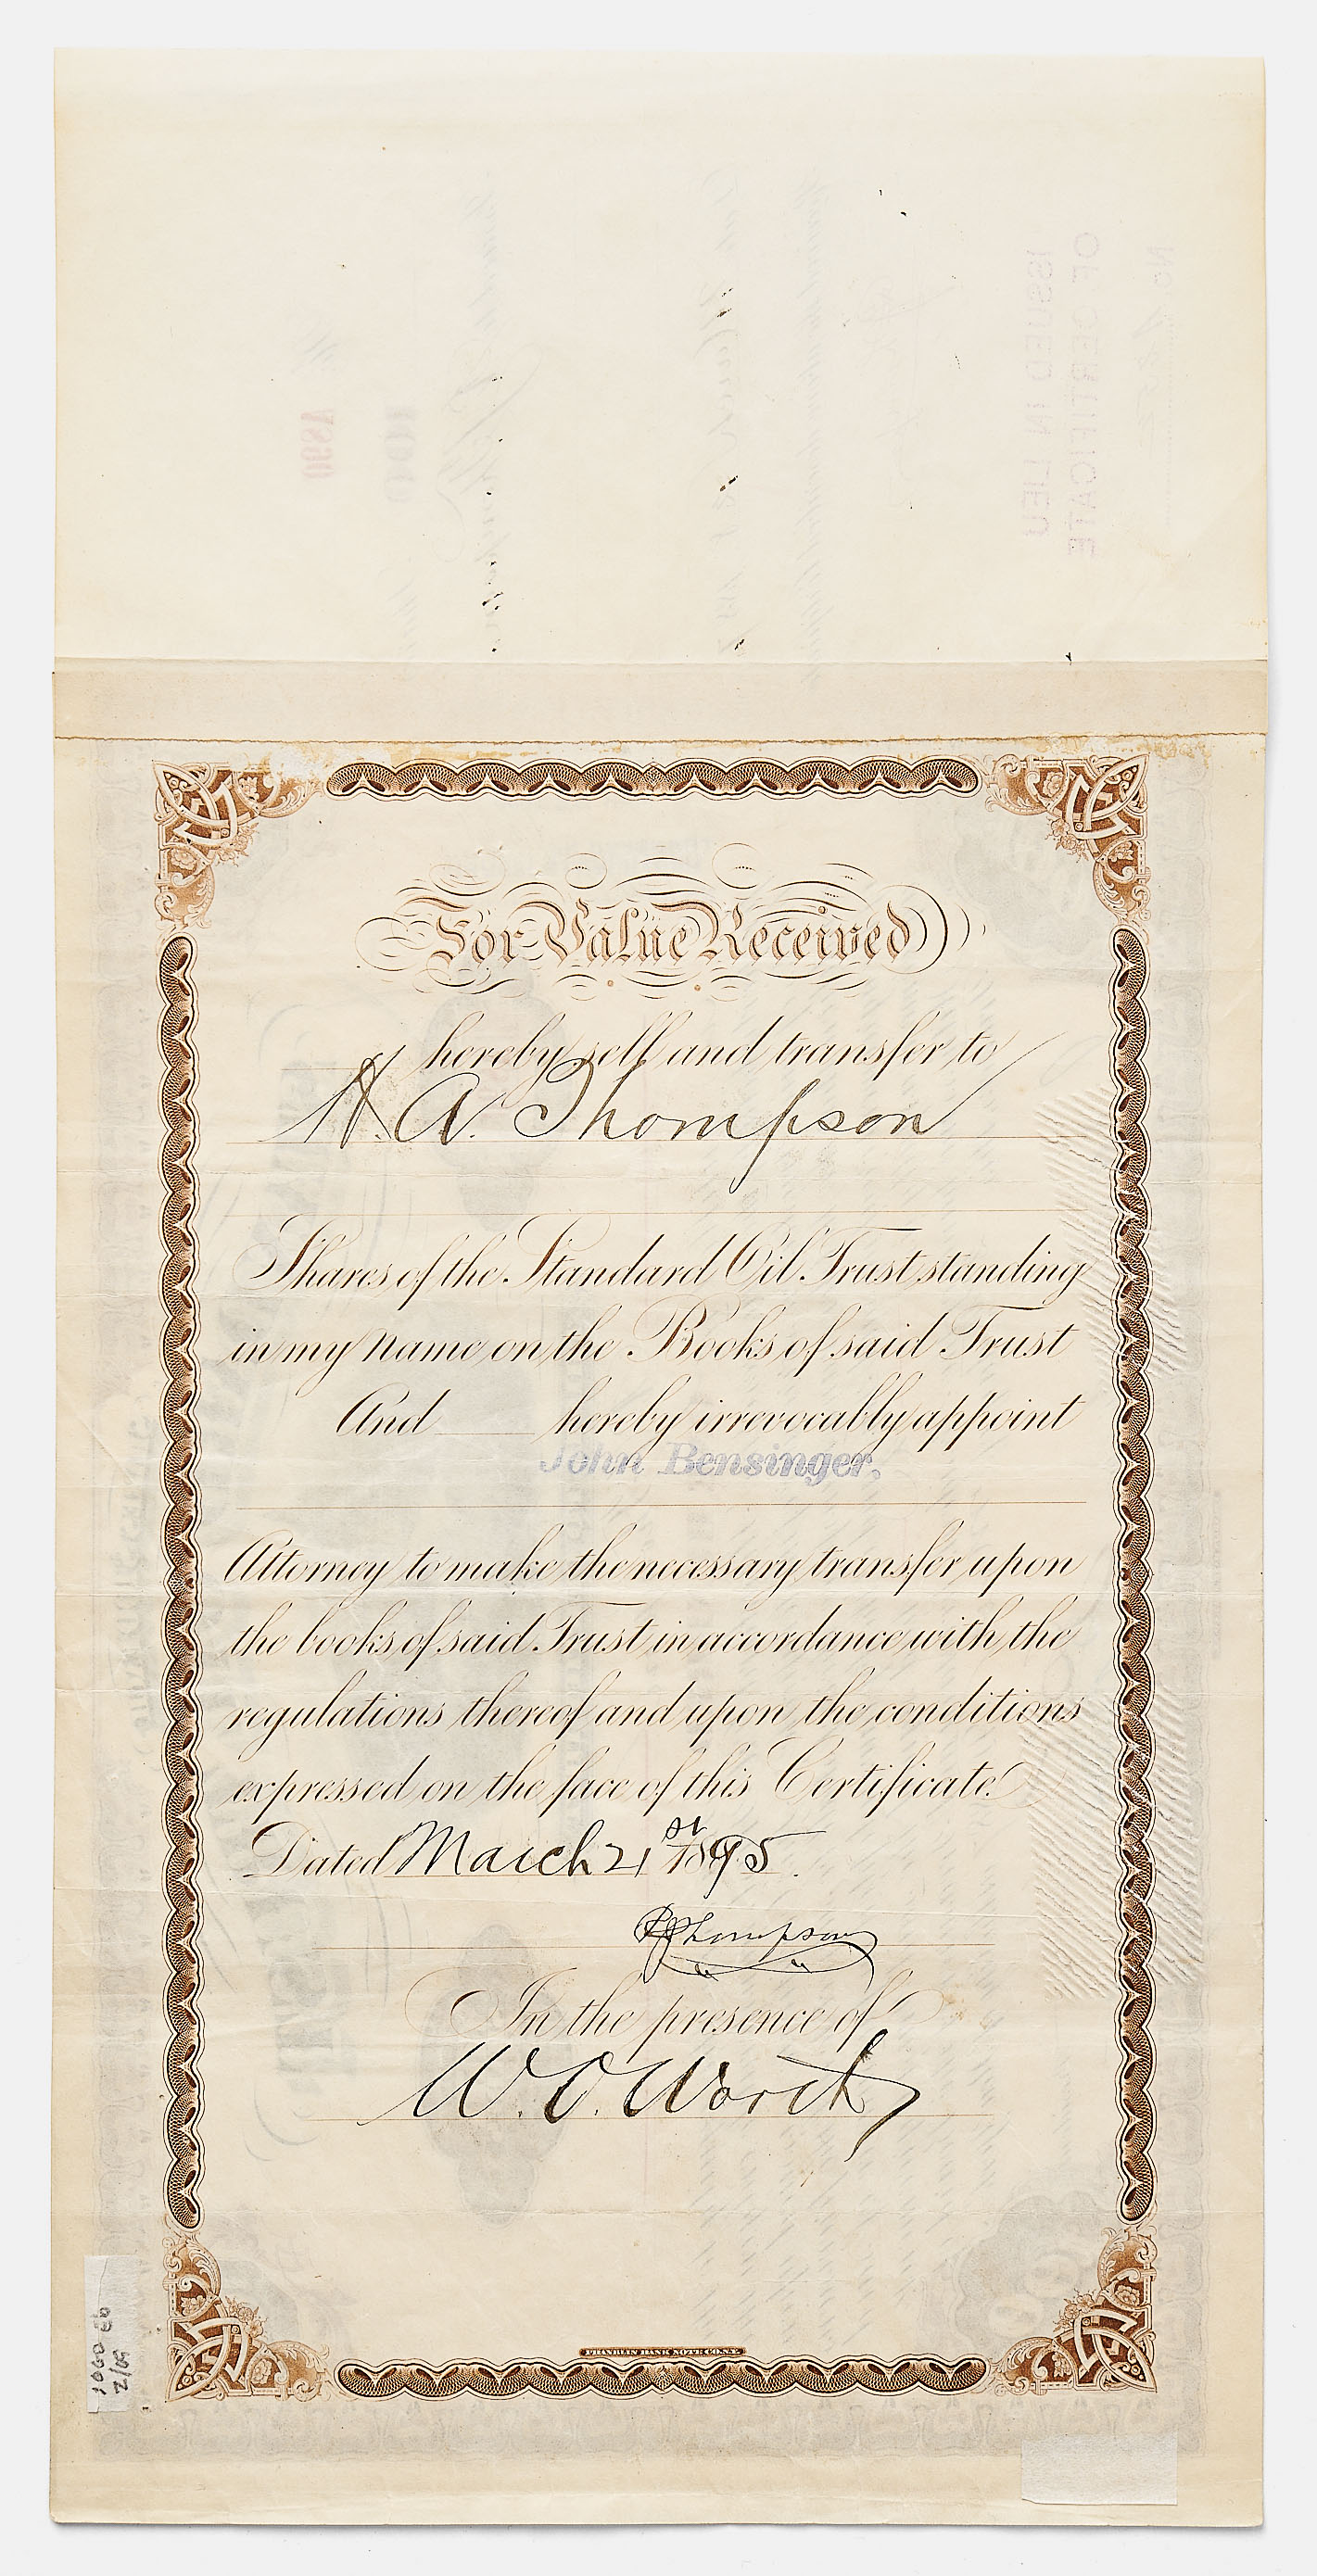 For Value Received
hereby sell and transfer to
H. A. Thompson
Shares of the Standard Oil Trust standing
in my name on the Books of said Trust
And hereby irrevocably appoint
John Bensinger,
Attorney to make the necessary transfer upon
the books of said Trust in accordance with the
regulations thereof and upon the conditions
expressed on the face of this Certificate.
Dated March 21st 1895.
Thompson
In the presence of
W. O. Worth
FRANKLIN BANK NOTE CO. N.Y.
2/09
OF CERTIFICATE
ISSUED IN LIEU
No